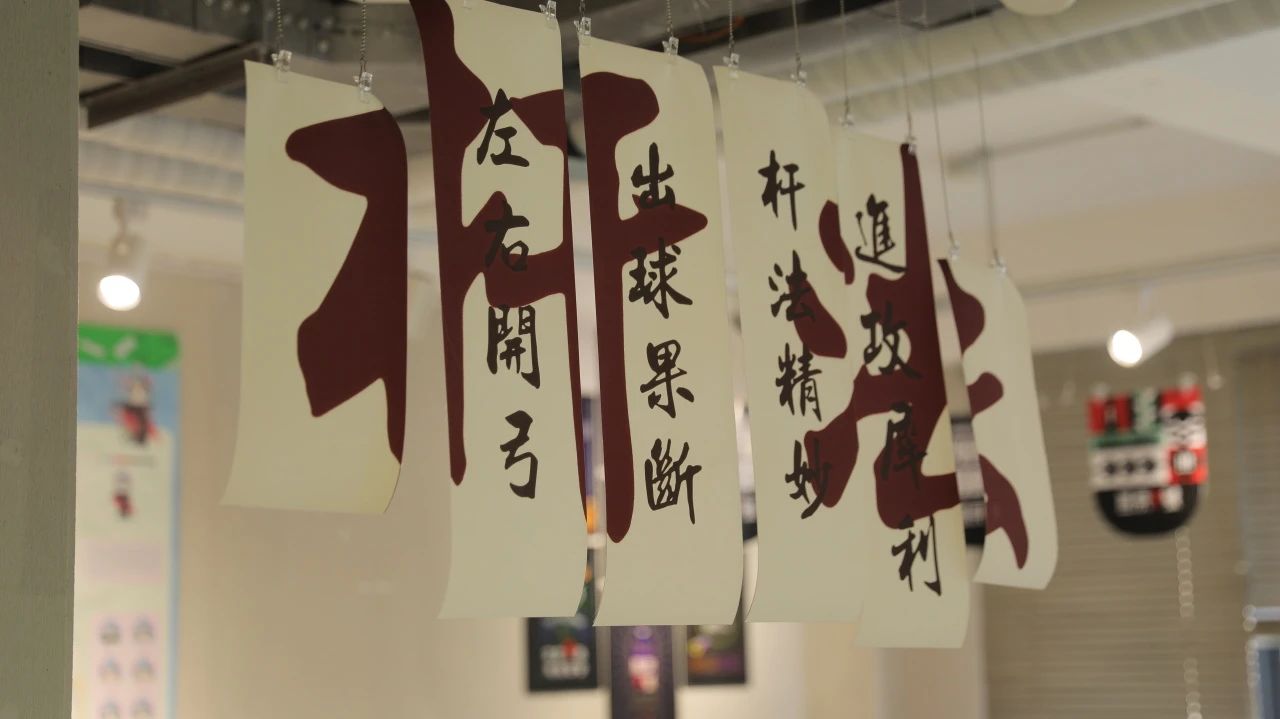 杆法
左右開弓
出球果斷
杆法精妙
進攻犀利